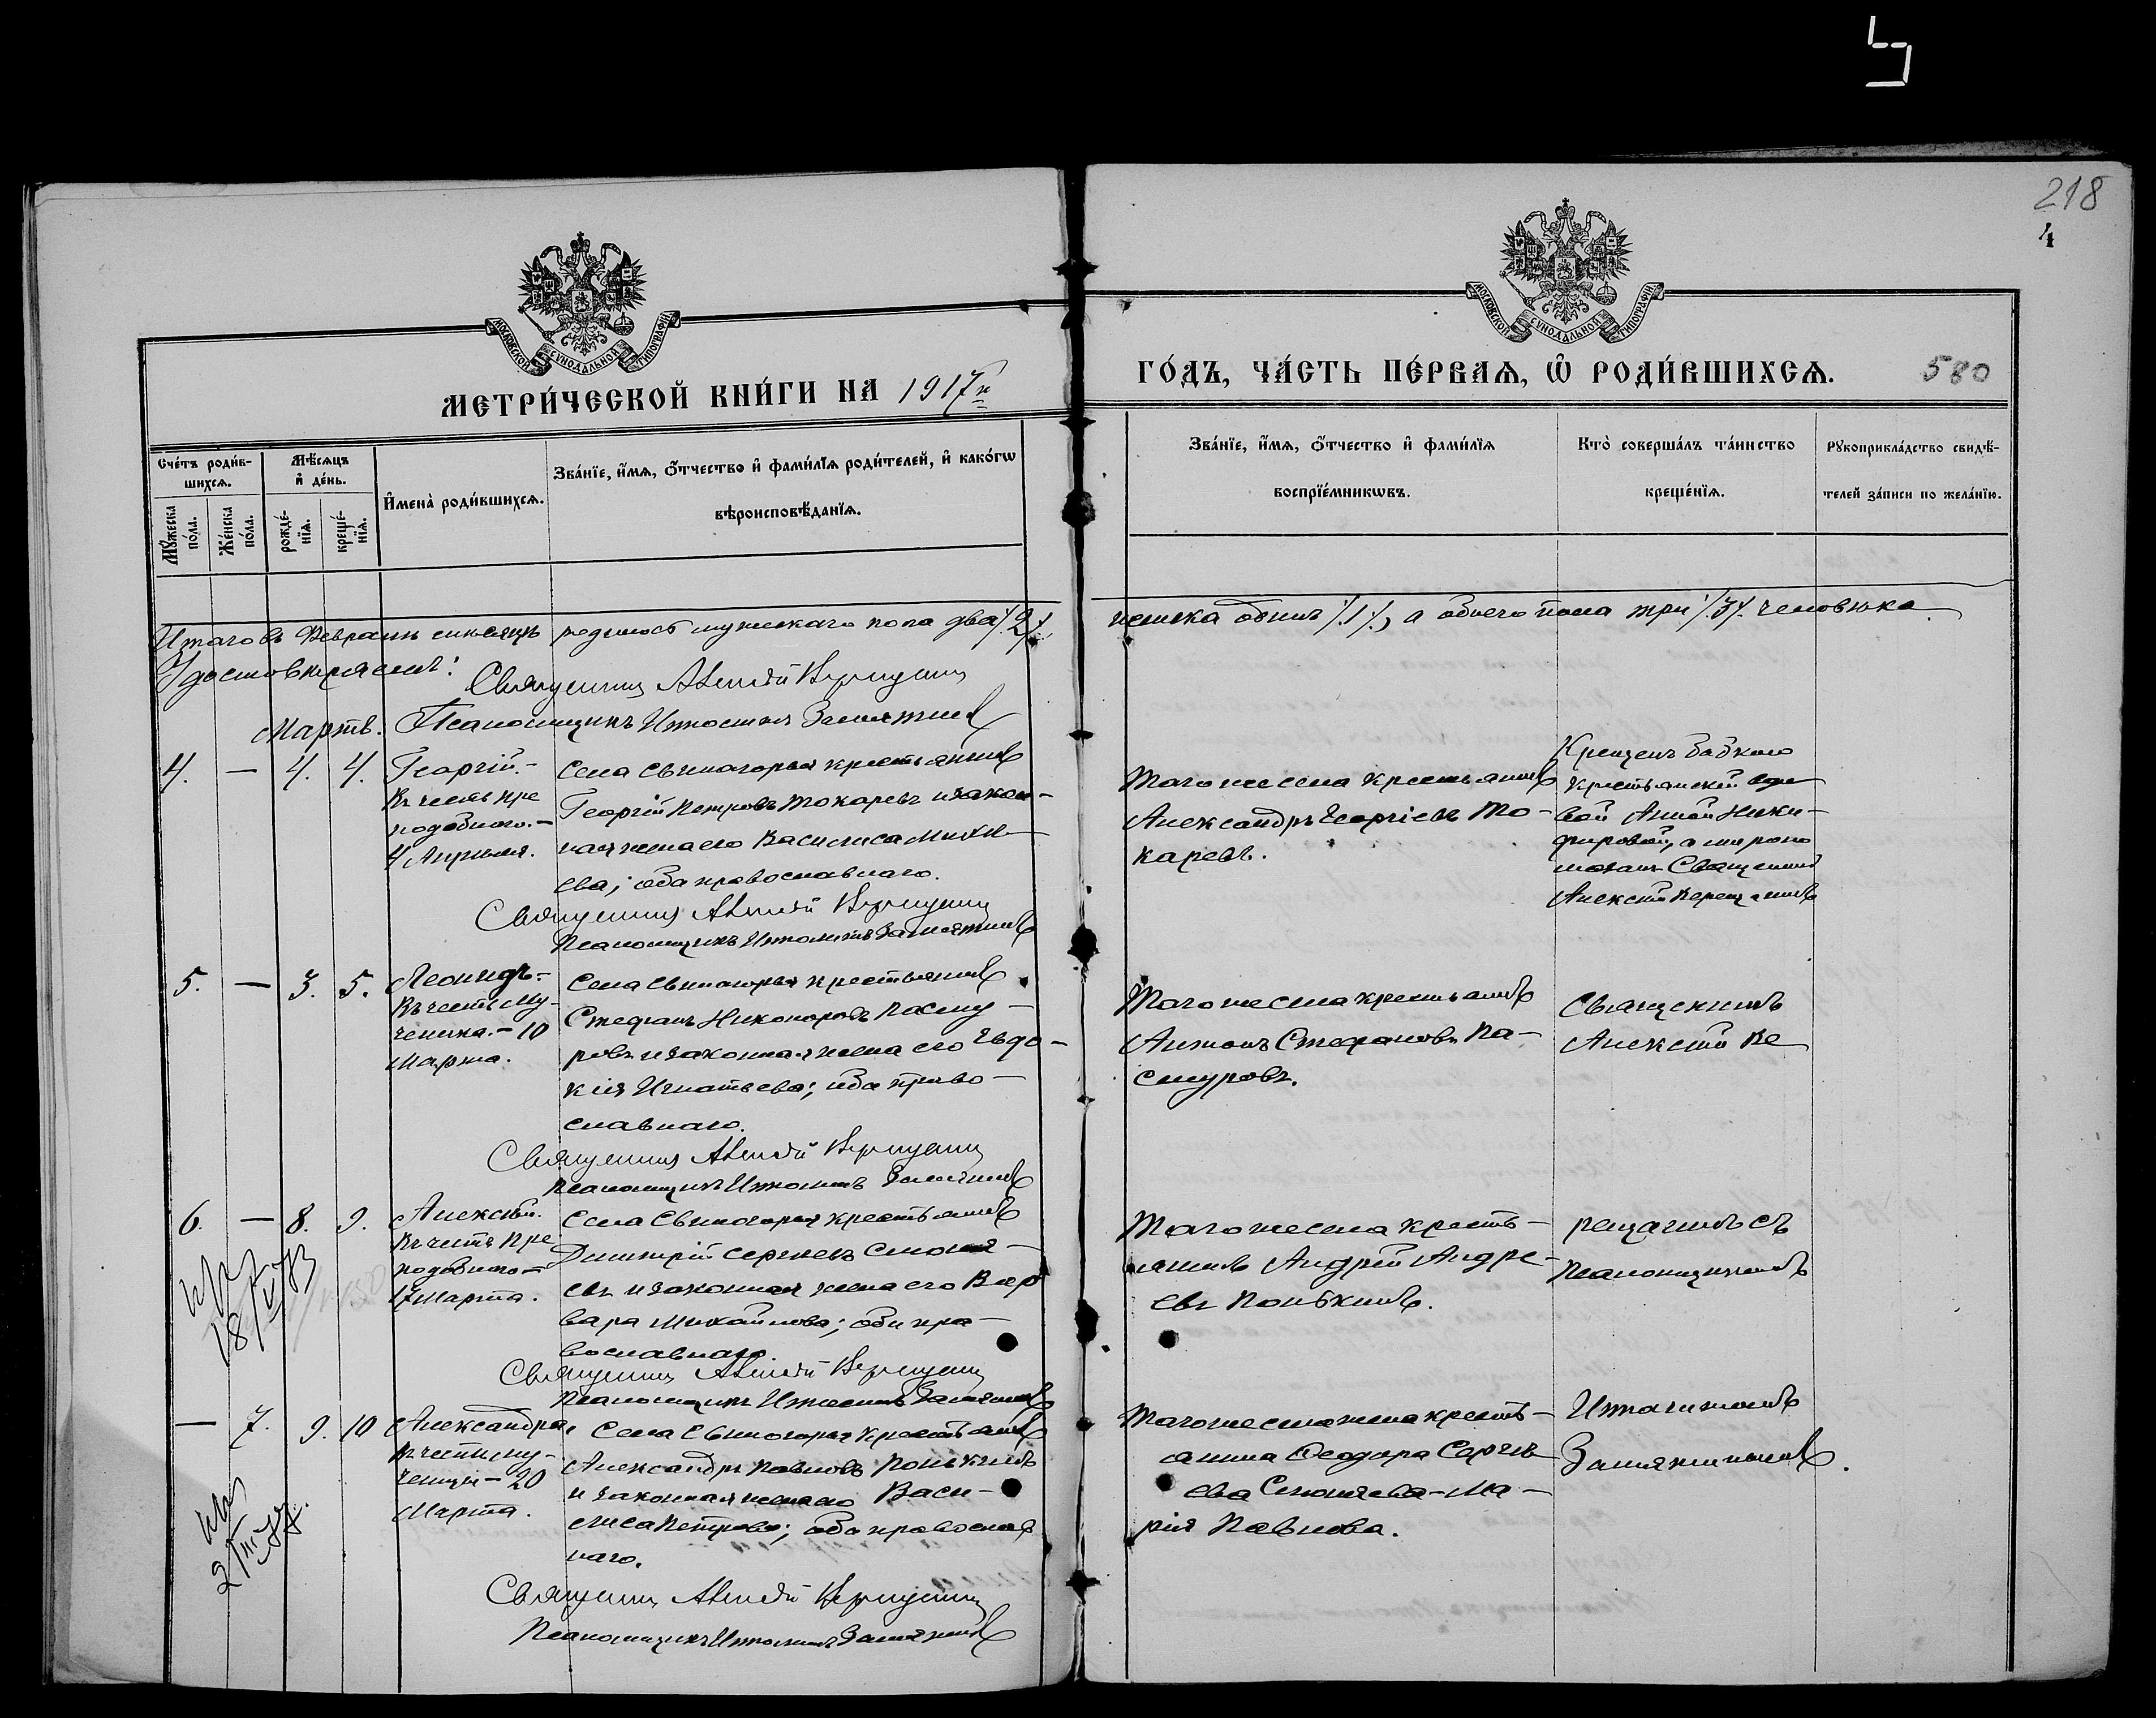 218
4
МОСКОВСКОЙ СУНОДАЛЬНОЙ ТИПОГРАФІИ
МОСКОВСКОЙ СУНОДАЛЬНОЙ ТИПОГРАФІИ
МЕТРИ́ЧЕСКОЙ КНИ́ГИ НА 1917 й
ГО́ДЪ, ЧА́СТЬ ПЕ́РВАѦ, Ѡ҆ РОДИ́ВШИХСѦ.
580
Сче́тъ роди́в-
шихсѧ.
Мѣ́сѧцъ
и҆ де́нь.
И҆мена̀ роди́вшихсѧ.
Зва́нїе, и҆́мѧ, ѻ҆́тчество и҆ фами́лїѧ роди́телей, и҆ како́гѡ
вѣроисповѣ́данїѧ.
Мꙋ́жеска
по́ла.
Же́нска
по́ла.
рожде́-
нїѧ.
креще́-
нїѧ.
Зва́нїе, и҆́мѧ, ѻ҆́тчество и҆ фами́лїѧ
воспрїе́мникѡвъ.
Кто̀ соверша́лъ та́инство
креще́нїѧ.
Рꙋкоприкла́дство свидѣ́-
телей за́писи по жела́нїю.
Итого въ Февралѣ мѣсяцѣ родилось мужскаго пола два /2/,
женска одинъ /1/, а обоего пола три /3/. человѣка
Удостовѣряемъ:
Священникъ Алексѣй Верещагинъ
Мартъ.
Псаломщикъ Ипполитъ Замятинъ
4. — 4. 4.
Георгій. –
Въ честь пре
подобнаго. –
4 Апрѣля.
Села Свиногорья крестьянинъ
Георгій Петровъ Токаревъ и закон-
ная жена его Василиса Михѣ-
ева; оба православнаго.
Того же села крестьянинъ
Александръ Георгіевъ То-
каревъ.
Крещенъ бабкою
крестьянской вдо
вой Анной Ники-
форовой, а миропо
мазанъ Священникъ
Алексѣй Верещагинъ
Священникъ Алексѣй Верещагинъ
Псаломщикъ Ипполитъ Замятинъ
5. — 3. 5.
Леонидъ –
Въ честь му-
ченика. – 10
Марта.
Села Свиногорья крестьянинъ
Стефанъ Никоноровъ Пасму-
ровъ и законная жена его Евдо-
кія Игнатьева; оба право-
славнаго.
Того же села крестьянинъ
Антонъ Стефановъ Па-
смуровъ.
Священникъ
Алексѣй Ве
Священникъ Алексѣй Верещагинъ
Псаломщикъ Ипполитъ Замятинъ
6. — 8. 9.
Алексѣй.
Въ честь Пре
подобнаго –
17 Марта.
Села Свиногорья крестьянинъ
Димитрій Сергѣевъ
евъ и законная жена его Вар
вара Михайлова; оба пра-
вославнаго.
Того же села кресть-
янинъ Андрей Андре-
евъ Понькинъ.
рещагинъ съ
Псаломщикомъ
Священникъ Алексѣй Верещагинъ
Псаломщикъ Ипполитъ Замятинъ
— 7. 9. 10
Александра.
Въ честь му-
ченицы – 20
Марта.
Села Свиногорья крестьянинъ
Александръ Павловъ Понькинъ
и законная жена его Васи-
лиса Петрова; оба православ
наго.
Того же села жена кресть-
янина Ѳеодора Сергѣ
ева – Ма-
рія Павлова.
Ипполитомъ
Замятинымъ.
Священникъ Алексѣй Верещагинъ
Псаломщикъ Ипполитъ Замятинъ